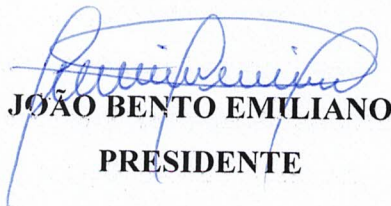 JOÃO BENTO EMILIANO
PRESIDENTE